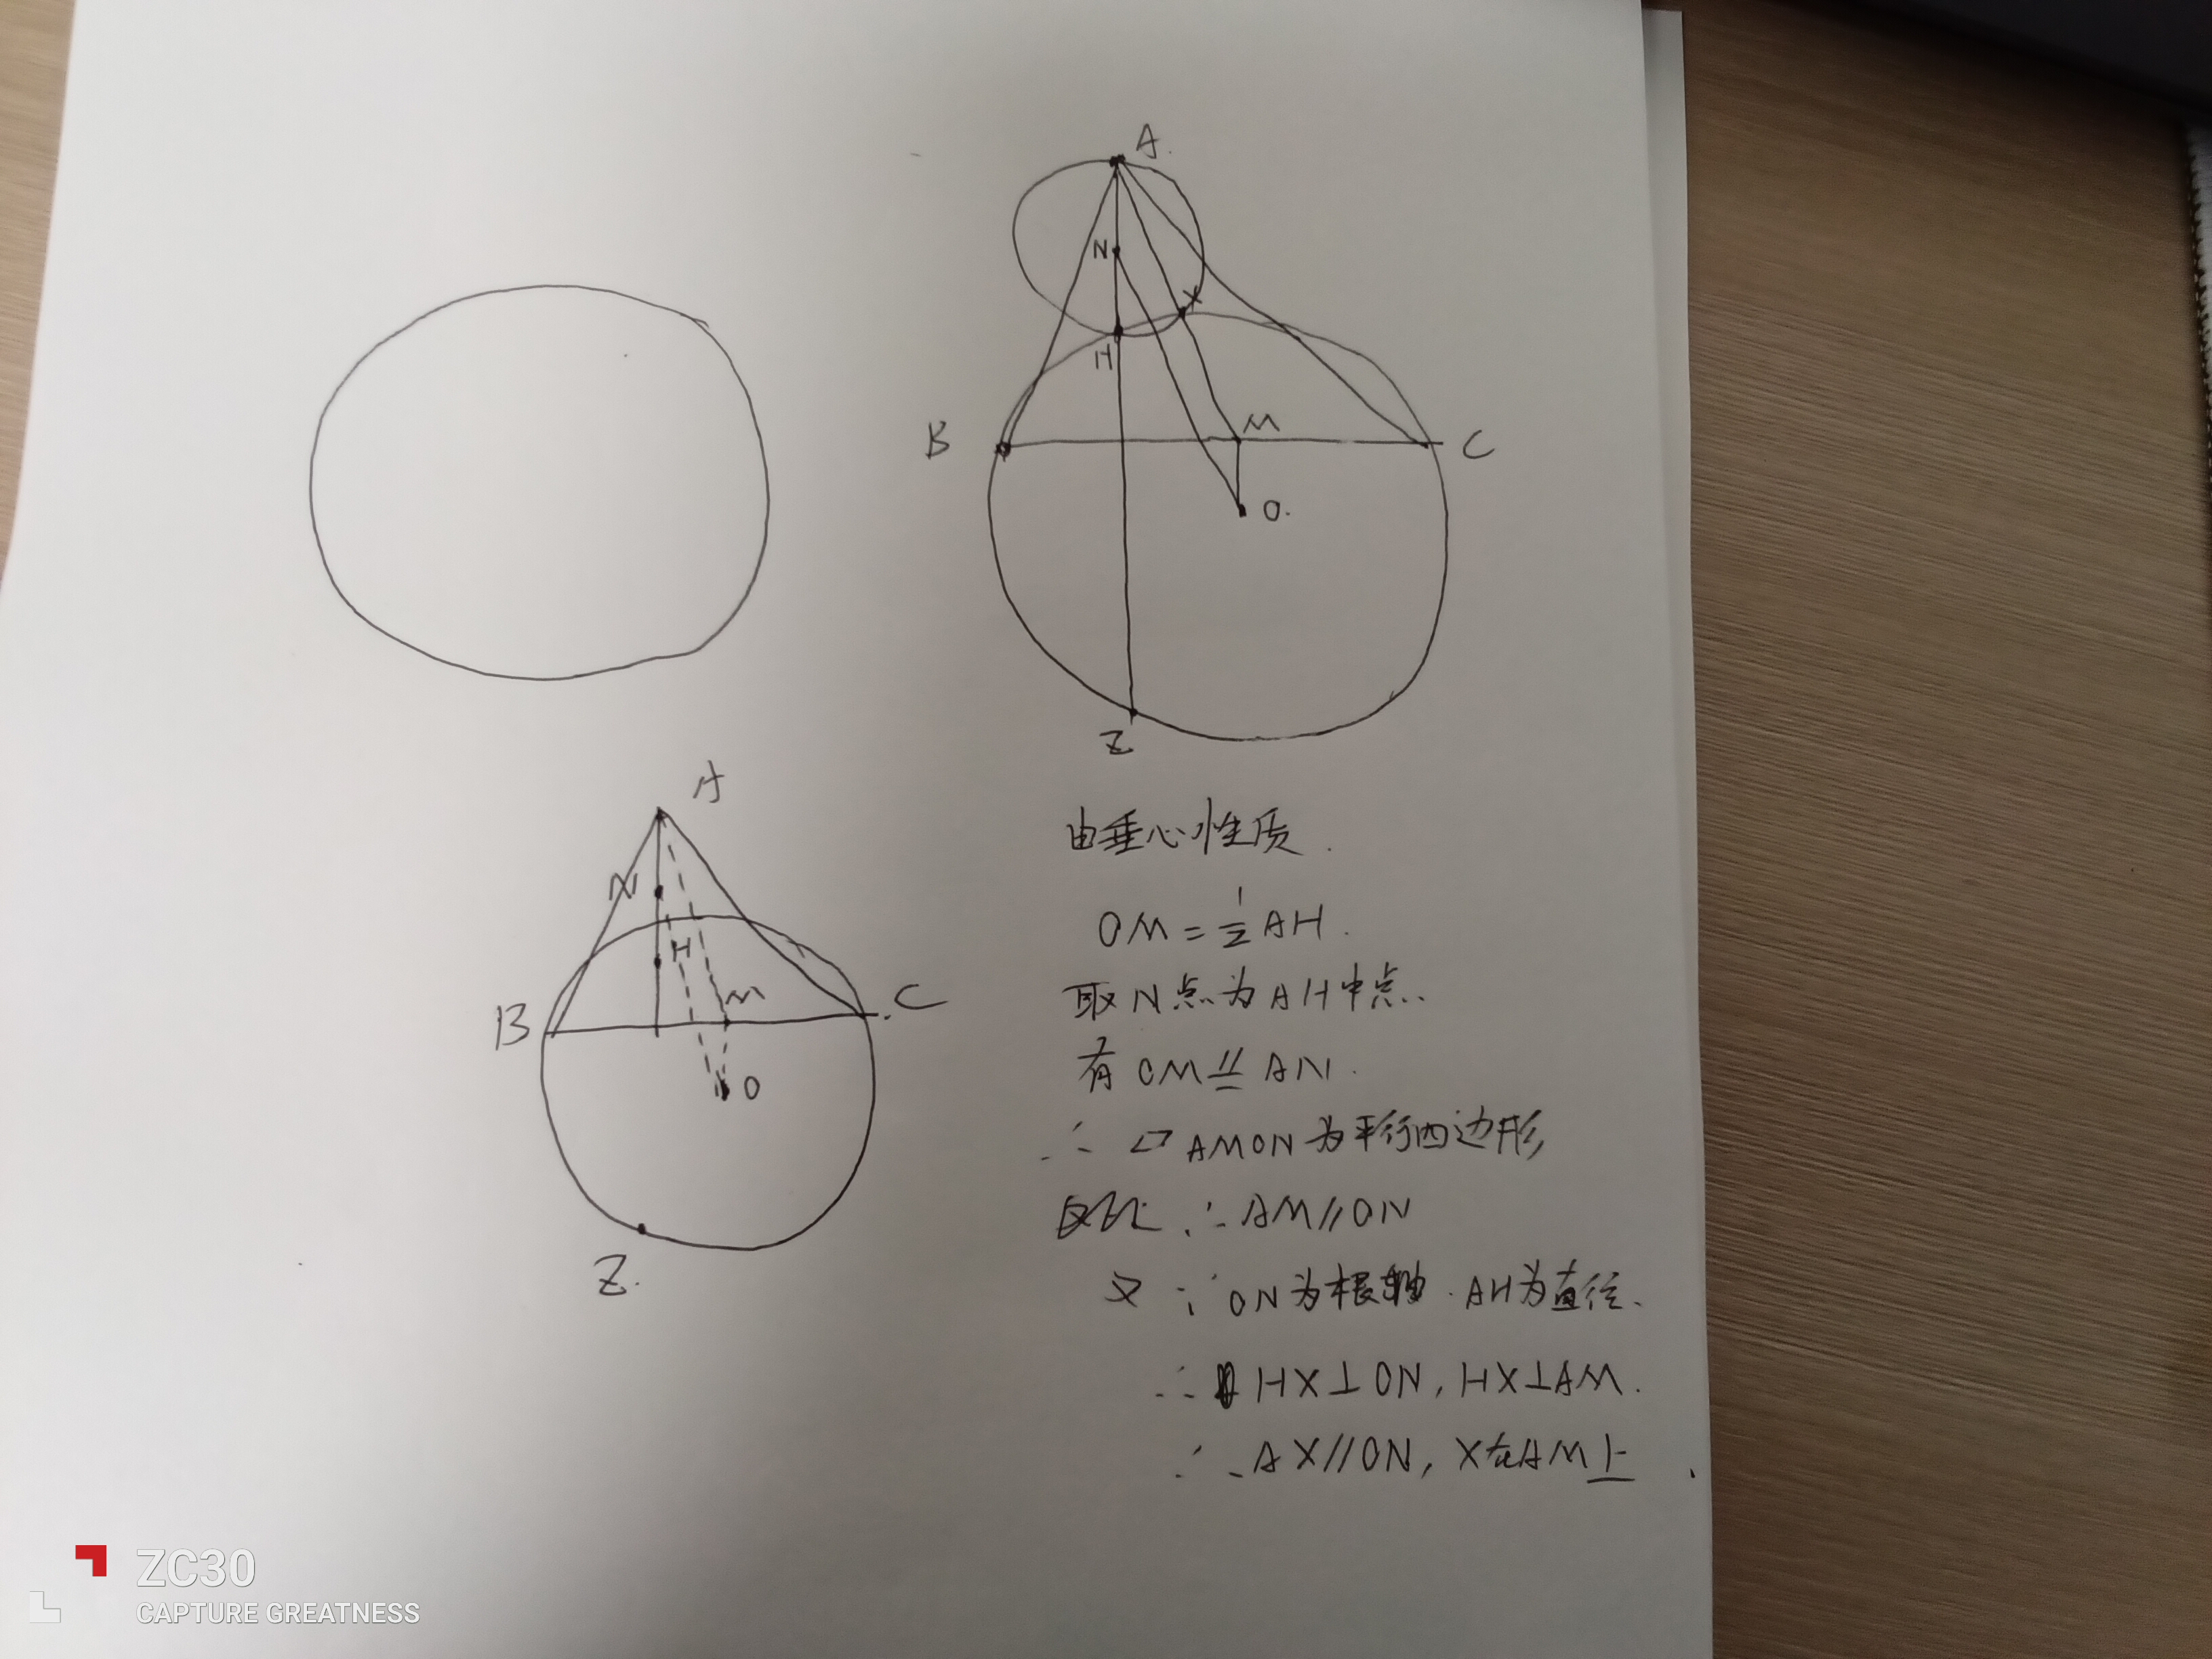 A.
N
X
H
B
M
C
O.
Z
A
N
H
M
B
C
O
Z.
由垂心性质.
OM=½AH.
取N点为AH中点.
有OM⫽AN.
∴ ▱AMON为平行四边形
∴AM//ON
又∵ON为根轴.AH为直径.
∴HX⊥ON, HX⊥AM.
∴AX//ON, X在AM上.
ZC30
CAPTURE GREATNESS